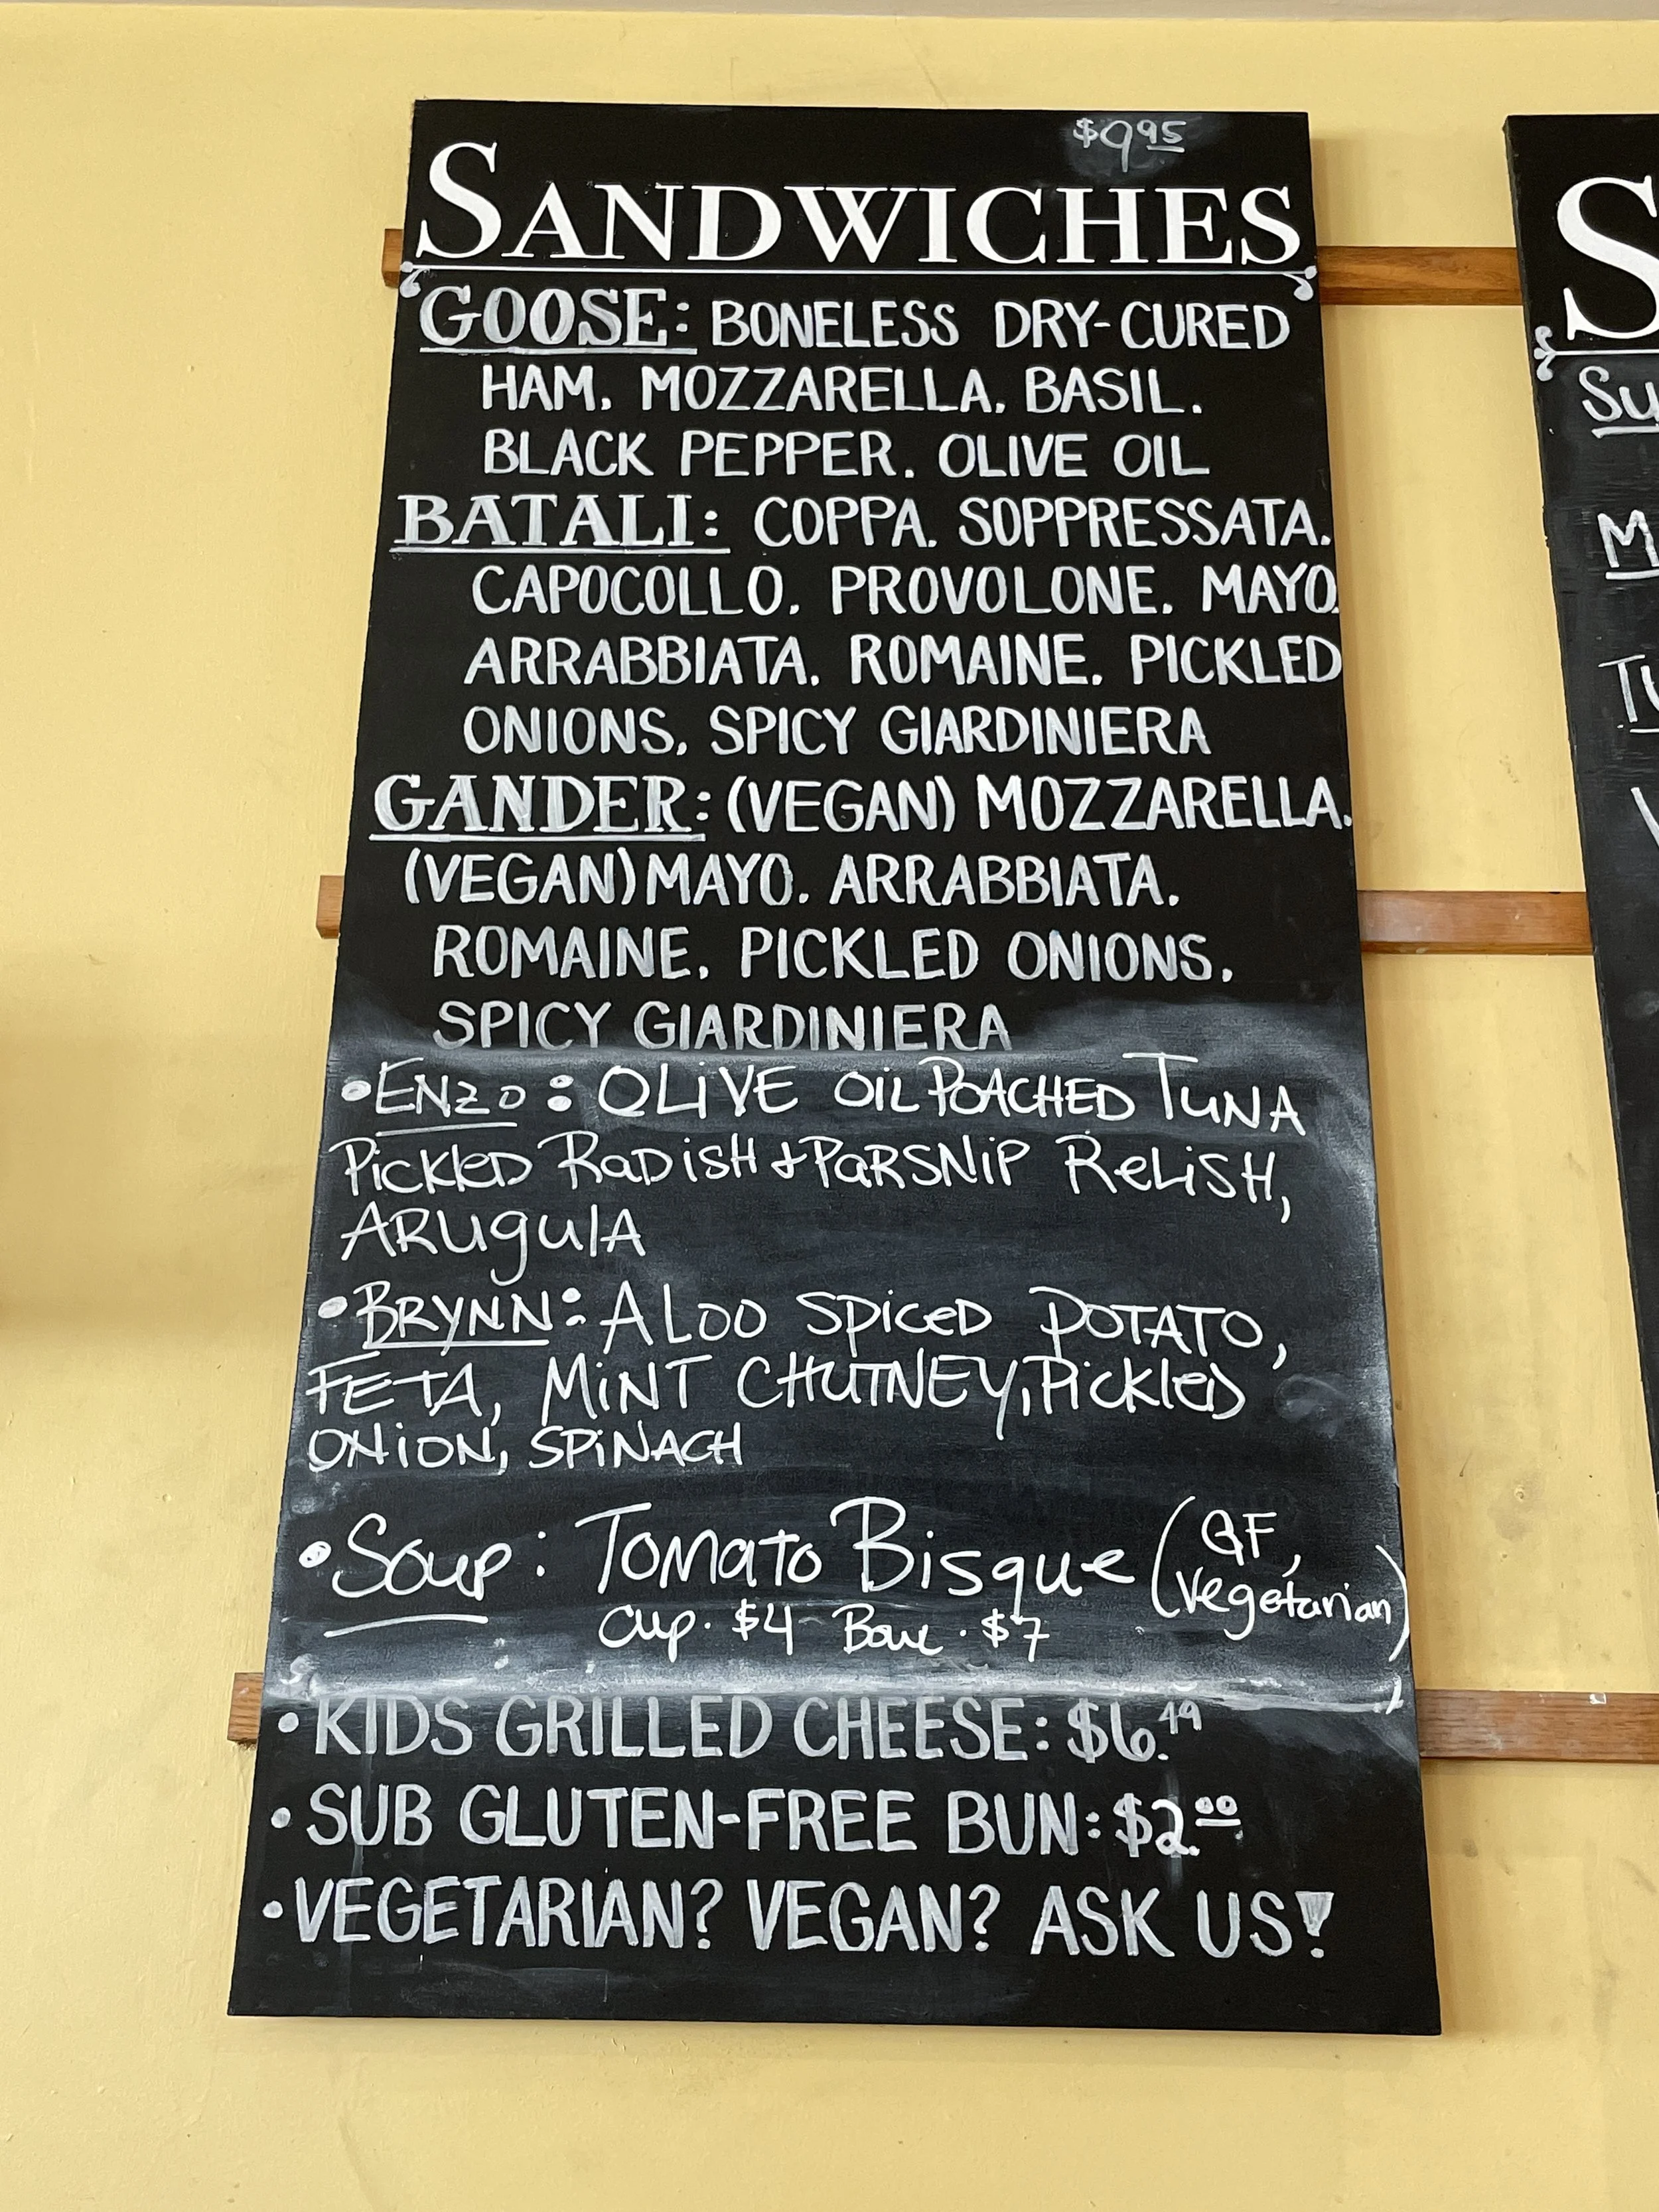 $9.95
SANDWICHES
GOOSE: BONELESS DRY-CURED
HAM, MOZZARELLA, BASIL,
BLACK PEPPER, OLIVE OIL
BATALI: COPPA, SOPPRESSATA,
CAPOCOLLO, PROVOLONE, MAYO,
ARRABBIATA, ROMAINE, PICKLED
ONIONS, SPICY GIARDINIERA
GANDER: (VEGAN) MOZZARELLA,
(VEGAN) MAYO, ARRABBIATA,
ROMAINE, PICKLED ONIONS,
SPICY GIARDINIERA
• ENZO: OLIVE OIL POACHED TUNA
PICKLED RADISH + PARSNIP RELISH,
ARUGULA
• BRYNN: ALOO SPICED POTATO,
FETA, MINT CHUTNEY, PICKLED
ONION, SPINACH
• Soup: Tomato Bisque (GF, Vegetarian)
Cup. $4 Bowl. $7
• KIDS GRILLED CHEESE: $6.49
• SUB GLUTEN-FREE BUN: $2.00
• VEGETARIAN? VEGAN? ASK US!